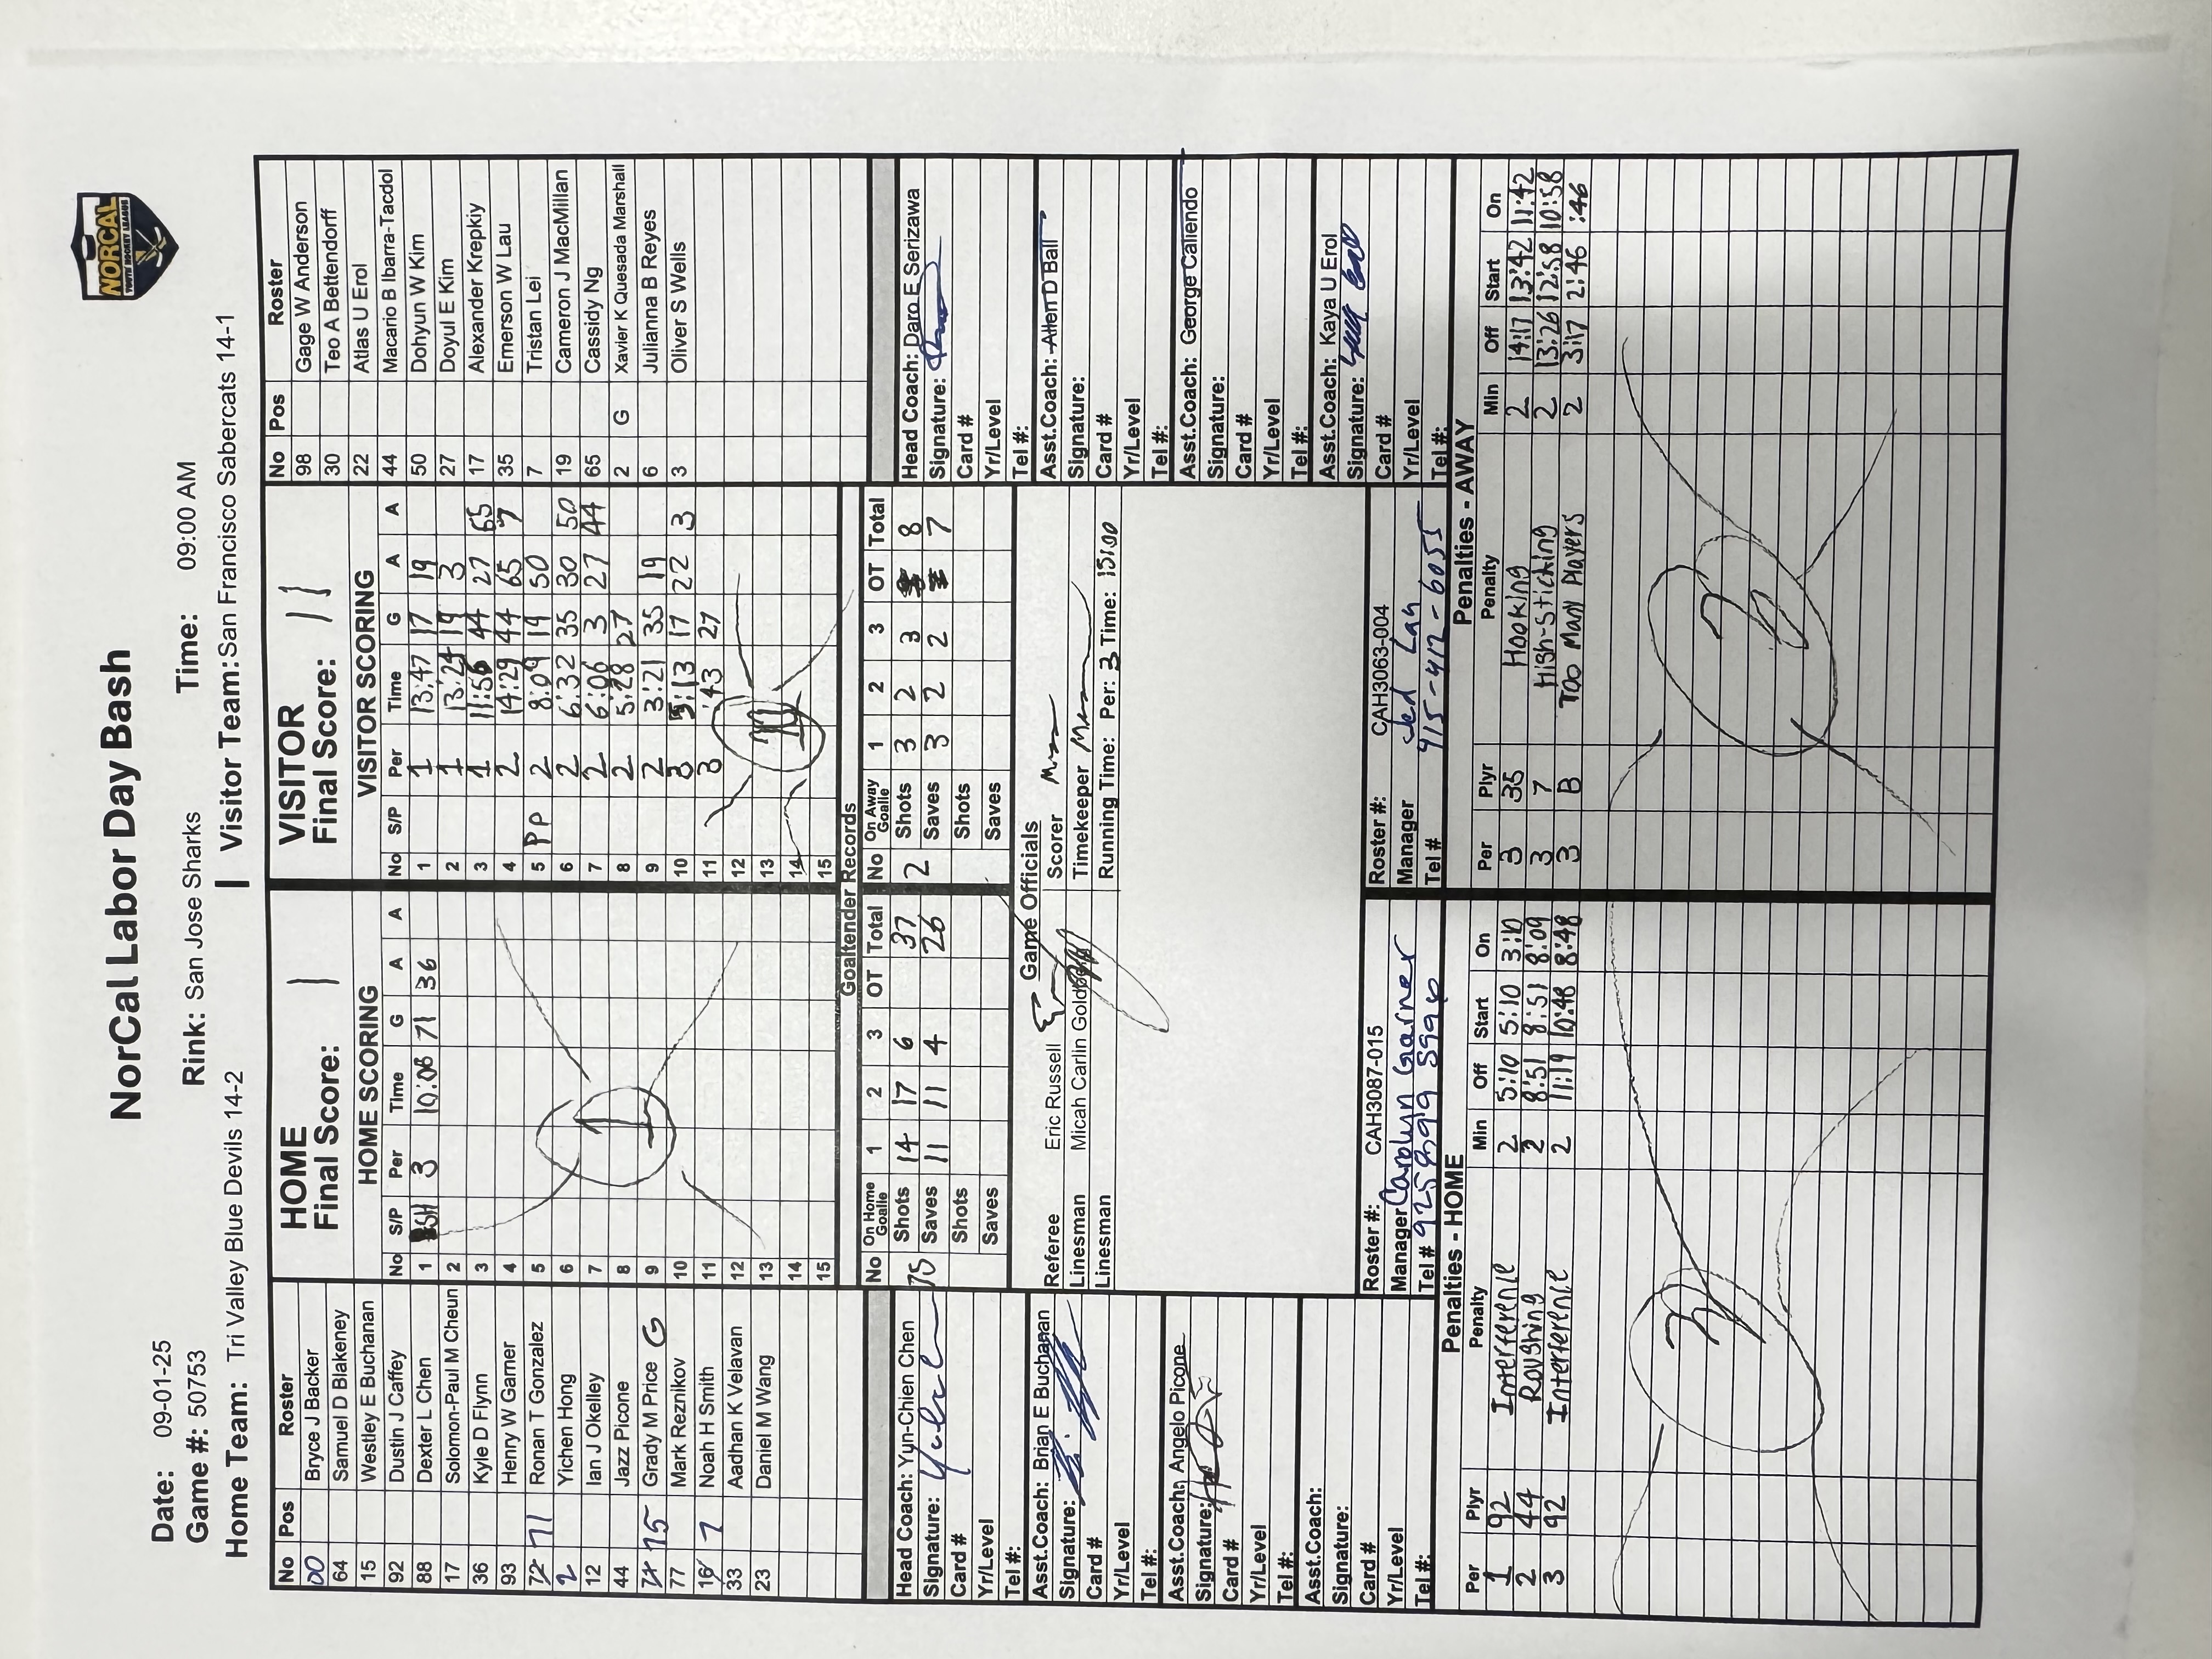 NorCal Labor Day Bash
NORCAL
YOUTH HOCKEY LEAGUE
Date: 09-01-25 Rink: San Jose Sharks Time: 09:00 AM
Game #: 50753
Home Team: Tri Valley Blue Devils 14-2 1 Visitor Team: San Francisco Sabercats 14-1
No Pos Roster
00 Bryce J Backer
64 Samuel D Blakeney
15 Westley E Buchanan
92 Dustin J Caffey
88 Dexter L Chen
17 Solomon-Paul M Cheun
36 Kyle D Flynn
93 Henry W Garner
72 71 Ronan T Gonzalez
2 Yichen Hong
12 Ian J Okelley
44 Jazz Picone
75 Grady M Price G
77 Mark Reznikov
16 7 Noah H Smith
33 Aadhan K Velavan
23 Daniel M Wang
HOME
Final Score: 1
HOME SCORING
No S/P Per Time G A A
1 SH 3 10:08 71 36
2
3
4
5
6
7
8
9
10
11
12
13
14
15
1
VISITOR
Final Score: 11
VISITOR SCORING
No S/P Per Time G A A
1 1 13:47 17 19
2 1 13:24 19 3
3 1 11:56 44 27 65
4 2 14:29 44 65 7
5 PP 2 8:09 19 50
6 2 6:32 35 30 50
7 2 6:06 3 27 44
8 2 5:28 27
9 2 3:21 35 19
10 3 5:13 17 22 3
11 3 :43 27
12
13
14
15
11
No Pos Roster
98 Gage W Anderson
30 Teo A Bettendorff
22 Atlas U Erol
44 Macario B Ibarra-Tacdol
50 Dohyun W Kim
27 Doyul E Kim
17 Alexander Krepkiy
35 Emerson W Lau
7 Tristan Lei
19 Cameron J MacMillan
65 Cassidy Ng
2 G Xavier K Quesada Marshall
6 Julianna B Reyes
3 Oliver S Wells
Goaltender Records
No On Home Goalie 1 2 3 OT Total
75 Shots 14 17 6 37
Saves 11 11 4 26
Shots
Saves
No On Away Goalie 1 2 3 OT Total
2 Shots 3 2 3 8
Saves 3 2 2 7
Shots
Saves
Head Coach: Yun-Chien Chen
Signature:
Card #
Yr/Level
Tel #:
Asst.Coach: Brian E Buchanan
Signature:
Card #
Yr/Level
Tel #:
Asst.Coach: Angelo Picone
Signature:
Card #
Yr/Level
Tel #:
Asst.Coach:
Signature:
Card #
Yr/Level
Tel #:
Game Officials
Referee Eric Russell
Linesman Micah Carlin Goldberg
Linesman
Scorer
Timekeeper
Running Time: Per: 3 Time: 15:00
Head Coach: Daro E Serizawa
Signature:
Card #
Yr/Level
Tel #:
Asst.Coach: Allen D Ball
Signature:
Card #
Yr/Level
Tel #:
Asst.Coach: George Caliendo
Signature:
Card #
Yr/Level
Tel #:
Asst.Coach: Kaya U Erol
Signature:
Card #
Yr/Level
Tel #:
Roster #: CAH3087-015
Manager Carolyn Garner
Tel #
Roster #: CAH3063-004
Manager Lau
Tel # 415-412-6055
Penalties - HOME
Per Plyr Penalty Min Off Start On
1 92 Interference 2 5:10 5:10 3:10
2 44 Roughing 2 8:51 8:51 8:09
3 92 Interference 2 11:19 10:48 8:48
3
Penalties - AWAY
Per Plyr Penalty Min Off Start On
3 35 Hooking 2 14:17 13:42 11:42
3 7 High-Sticking 2 13:26 12:58 10:58
3 B Too Many Players 2 3:17 2:46 :46